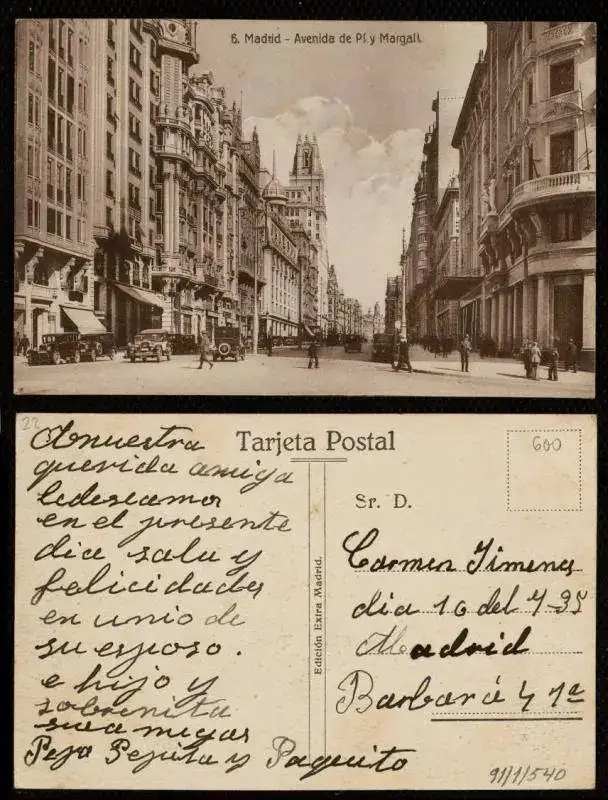 6. Madrid - Avenida de Pí y Margall.
22
Tarjeta Postal
A nuestra
querida amiga
ledeseamos
en el presente
dia salu y
felicidades
en unio de
su esposo.
e hijo y
sobrinita
sus amigas
Pepa Pepita y Paquito
Edición Extra Madrid.
600
Sr. D.
Carmen Jimenes
dia 16 del 7-35
Madrid
Barbara 4 1ª
91/1/540